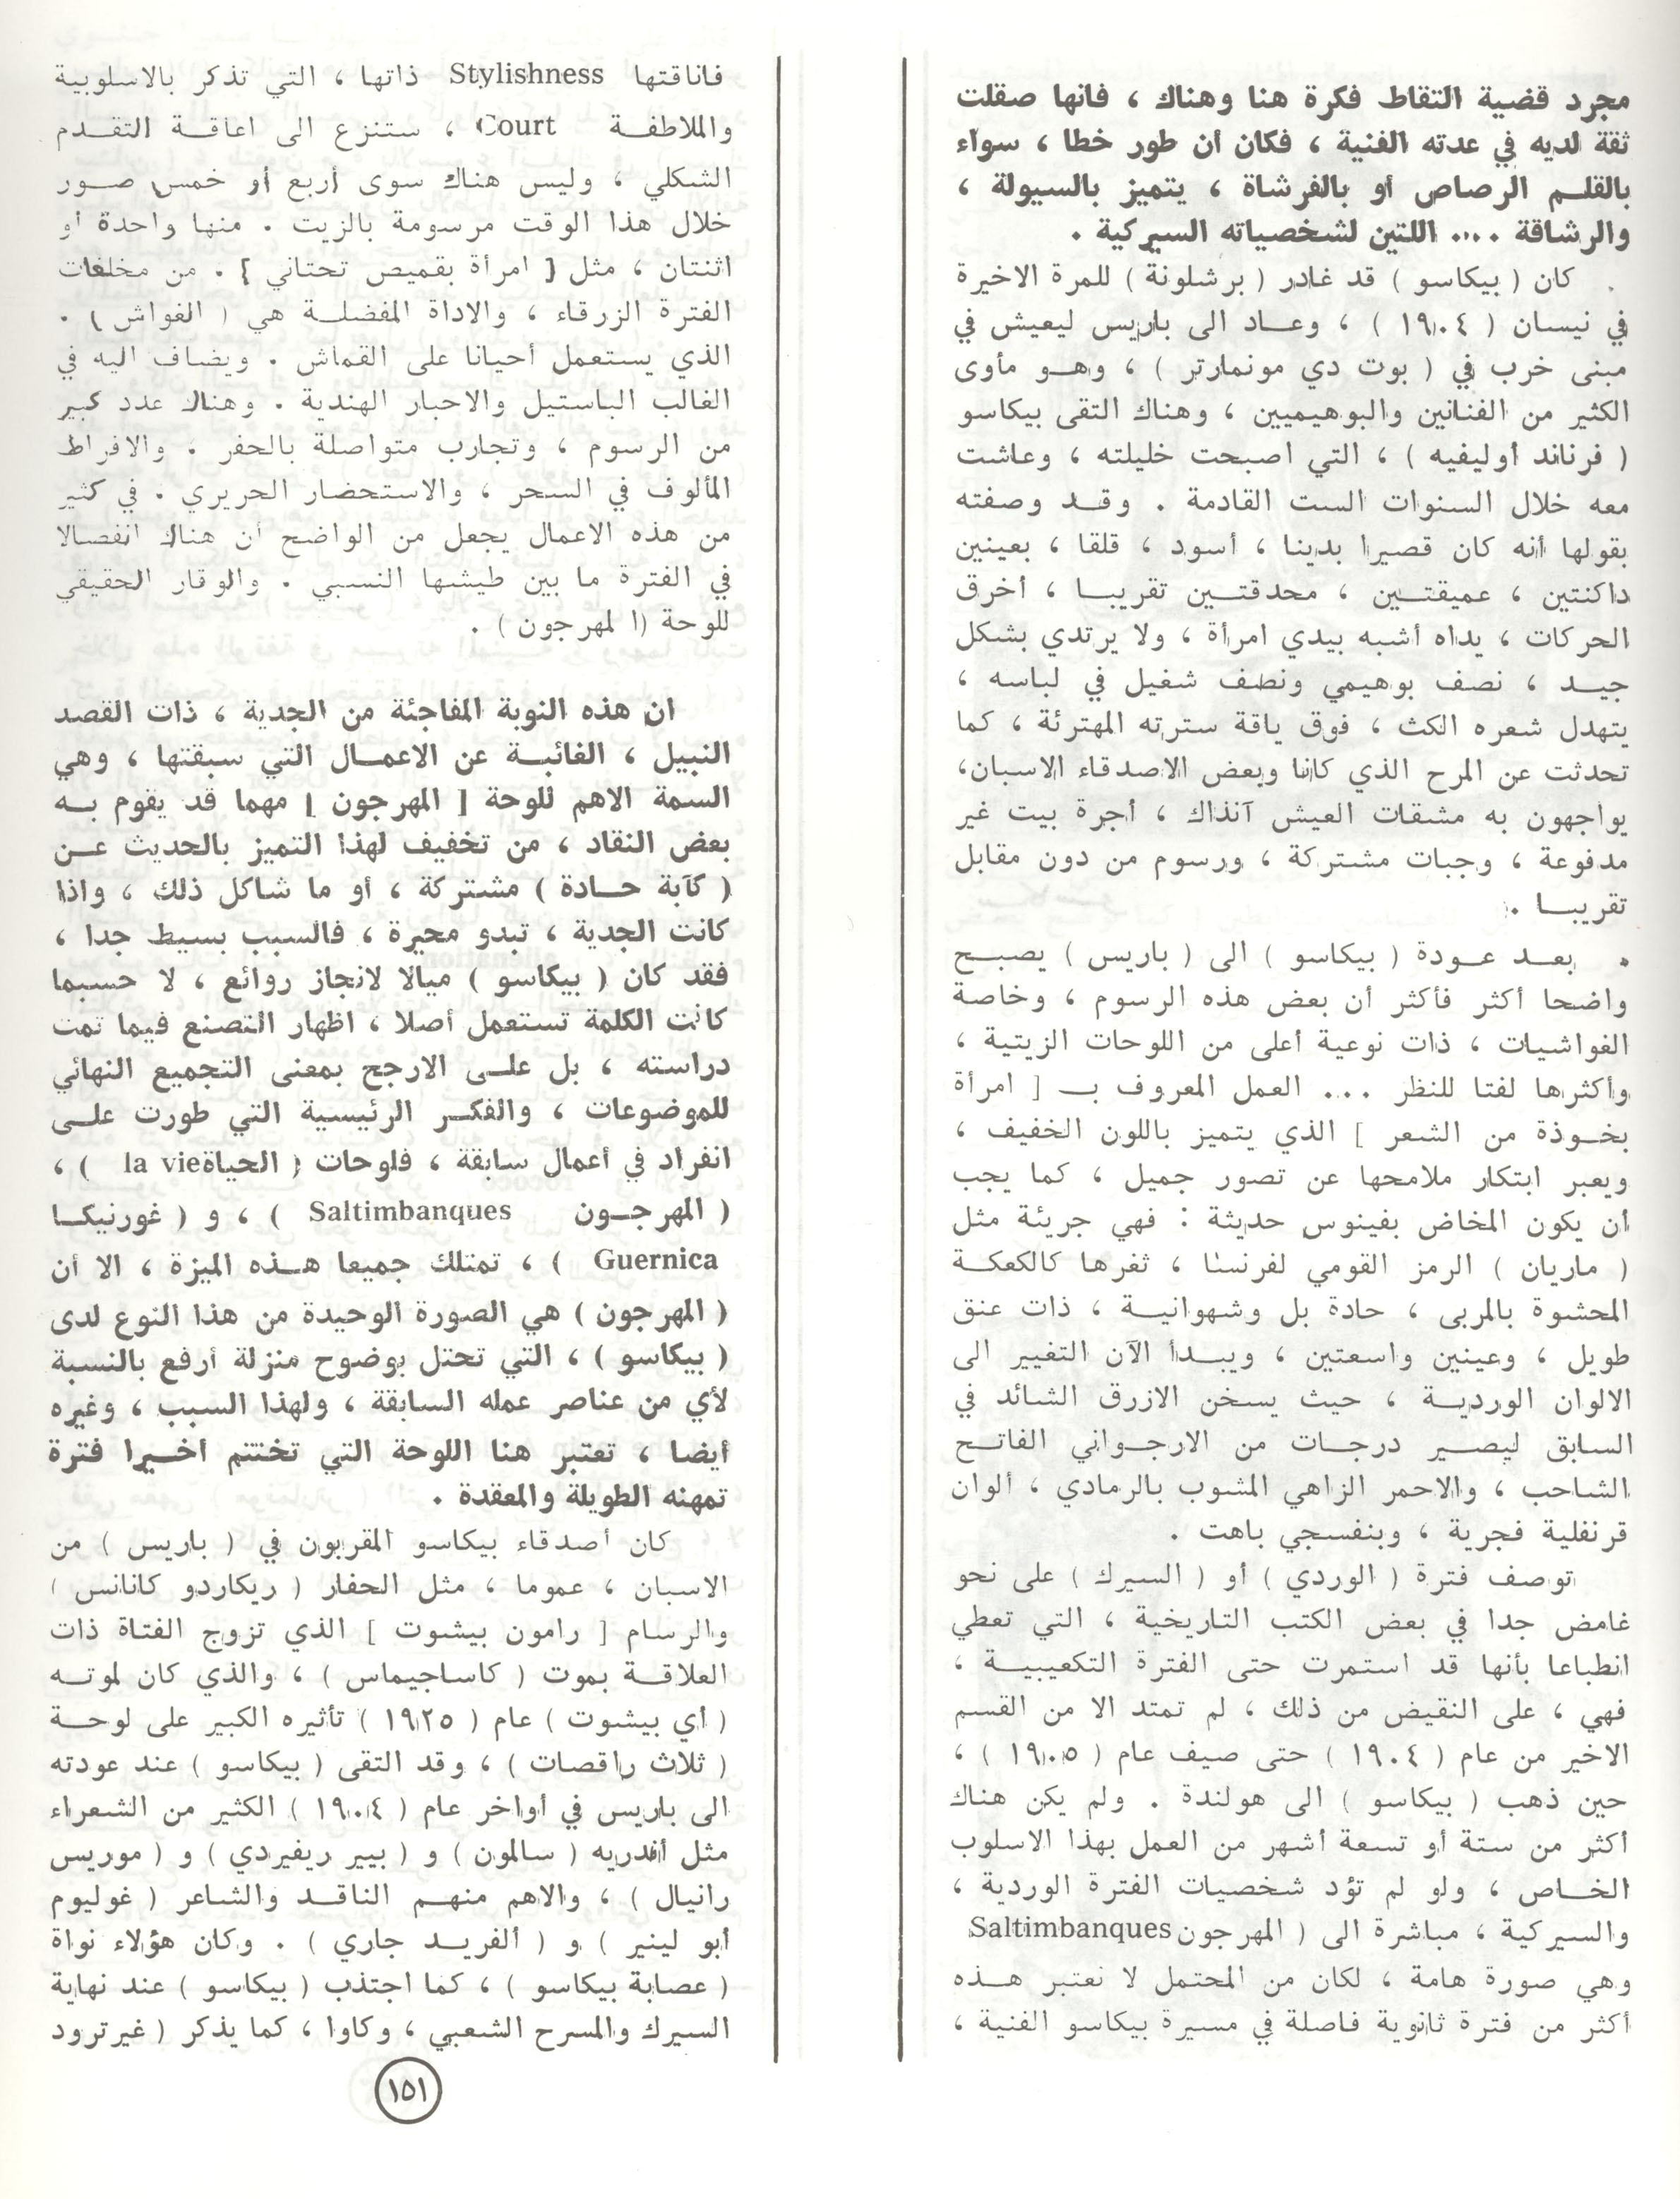 مجرد قضية التقاط فكرة هنا وهناك ، فانها صقلت
ثقة لديه في عدته الفنية ، فكان أن طور خطا ، سواء
بالقلـم الرصاص أو بالفرشاة ، يتميز بالسيولة ،
والرشاقة .... اللتين لشخصياته السيركية .
كان ( بيكاسو ) قد غادر ( برشلونة ) للمرة الاخيرة
في نيسان ( ١٩٠٤ ) ، وعـاد الى باريس ليعيش في
مبنى خرب في ( بوت دي مونمارتر ) ، وهـو مأوى
الكثير من الفنانين والبوهيميين ، وهناك التقى بيكاسو
( فرناند أوليفيه ) ، التي اصبحت خليلته ، وعاشت
معه خلال السنوات الست القادمة . وقـد وصفته
بقولها أنه كان قصيرا بدينا ، أسود ، قلقا ، بعينين
داكنتين ، عميقتـين ، محدقتـين تقريبـا ، أخرق
الحركات ، يداه أشبه بيدي امرأة ، ولا يرتدي بشكل
جيـد ، نصف بوهيمي ونصف شغيل في لباسه ،
يتهدل شعره الكث ، فوق ياقة سترته المهترئة ، كما
تحدثت عن المرح الذي كانا وبعض الاصدقاء الاسبان،
يواجهون به مشقات العيش آنذاك ، أجرة بيت غير
مدفوعة ، وجبات مشتركة ، ورسوم من دون مقابل
تقريبـا .
. بعـد عـودة ( بيكاسو ) الى ( باريس ) يصبـح
واضحا أكثر فأكثر أن بعض هذه الرسوم ، وخاصة
الغواشيات ، ذات نوعية أعلى من اللوحات الزيتية ،
وأكثرها لفتا للنظر ... العمل المعروف بـ [ امرأة
بخـوذة من الشعر ] الذي يتميز باللون الخفيف ،
ويعبر ابتكار ملامحها عن تصور جميل ، كما يجب
أن يكون المخاض بفينوس حديثة : فهي جريئة مثل
( ماريان ) الرمز القومي لفرنسا ، ثغرها كالكعكـة
المحشوة بالمربى ، حادة بل وشهوانيـة ، ذات عنق
طويل ، وعينين واسعتين ، ويبـدأ الآن التغيير الى
الالوان الورديـة ، حيث يسخن الازرق الشائد في
السابق ليصـير درجـات من الارجـواني الفاتـح
الشاحب ، والاحمر الزاهي المشوب بالرمادي ، ألوان
قرنفلية فجرية ، وبنفسجي باهت .
توصف فترة ( الوردي ) أو ( السيرك ) على نحو
غامض جدا في بعض الكتب التاريخية ، التي تعطي
انطباعا بأنها قد استمرت حتى الفترة التكعيبيـة ،
فهي ، على النقيض من ذلك ، لم تمتد الا من القسم
الاخير من عام ( ١٩٠٤ ) حتى صيف عام ( ١٩٠٥ ) ،
حين ذهب ( بيكاسو ) الى هولندة . ولم يكن هناك
أكثر من ستة أو تسعة أشهر من العمل بهذا الاسلوب
الخـاص ، ولو لم تؤد شخصيات الفترة الوردية ،
والسيركية ، مباشرة الى ( المهرجون Saltimbanques
وهي صورة هامة ، لكان من المحتمل لا نعتبر هـذه
أكثر من فترة ثانوية فاصلة في مسيرة بيكاسو الفنية ،
فاناقتها Stylishness ذاتها ، التي تذكر بالاسلوبية
والملاطفـة Court ، ستنزع الى اعاقـة التقـدم
الشكلي ، وليس هناك سوى أربع أو خمس صـور
خلال هذا الوقت مرسومة بالزيت . منها واحدة أو
اثنتان ، مثل [ امرأة بقميص تحتاني ] . من مخلفات
الفترة الزرقاء ، والاداة المفضلـة هي ( الغواش ) .
الذي يستعمل أحيانا على القماش . ويضاف اليه في
الغالب الباستيل والاحبار الهندية . وهناك عدد كبير
من الرسوم ، وتجارب متواصلة بالحفر . والافراط
المألوف في السحر ، والاستحضار الحريري . في كثير
من هذه الاعمال يجعل من الواضح أن هناك انفصالا
في الفترة ما بين طيشها النسبي . والوقار الحقيقي
للوحة (المهرجون ) .
ان هذه النوبة المفاجئة من الجدية ، ذات القصد
النبيل ، الغائبـة عن الاعمـال التي سبقتها ، وهي
السمة الاهم للوحة [ المهرجون ] مهما قد يقوم بـه
بعض النقاد ، من تخفيف لهذا التميز بالحديث عـن
( كآبة حـادة ) مشتركة ، أو ما شاكل ذلك ، واذا
كانت الجدية ، تبدو محيرة ، فالسبب بسيط جدا ،
فقد كان ( بيكاسو ) ميالا لانجاز روائع ، لا حسبما
كانت الكلمة تستعمل أصلا ، اظهار التصنع فيما تمت
دراسته ، بل علـى الارجح بمعنى التجميع النهائي
للموضوعات ، والفكـر الرئيسية التي طورت علـى
انفراد في أعمال سابقة ، فلوحات ( الحياة la vie ) ،
( المهرجـون Saltimbanques ) ، و ( غورنيكـا
Guernica ) ، تمتلك جميعا هـذه الميزة ، الا أن
( المهرجون ) هي الصورة الوحيدة من هذا النوع لدى
( بيكاسو ) ، التي تحتل بوضوح منزلة أرفع بالنسبة
لأي من عناصر عمله السابقة ، ولهذا السبب ، وغيره
أيضا ، تعتبر هنا اللوحة التي تختتم أخـيرا فترة
تمهنه الطويلة والمعقدة .
كان أصدقاء بيكاسو المقربون في ( باريس ) من
الاسبان ، عموما ، مثل الحفار ( ريكاردو كانانس )
والرسام [ رامون بيشوت ] الذي تزوج الفتاة ذات
العلاقـة بموت ( كاساجيماس ) ، والذي كان لموتـه
( أي بيشوت ) عام ( ١٩٢٥ ) تأثيره الكبير على لوحـة
( ثلاث راقصات ) ، وقد التقى ( بيكاسو ) عند عودته
الى باريس في أواخر عام ( ١٩٠٤ ) الكثير من الشعراء
مثل أندريه ( سالمون ) و ( بيير ريفيردي ) و ( موريس
رانيال ) ، والاهم منهـم الناقـد والشاعر ( غوليوم
أبو لينير ) و ( ألفريـد جاري ) . وكان هؤلاء نواة
( عصابة بيكاسو ) ، كما اجتذب ( بيكاسو ) عند نهاية
السيرك والمسرح الشعبي ، وكاوا ، كما يذكر ( غيرترود
١٥١